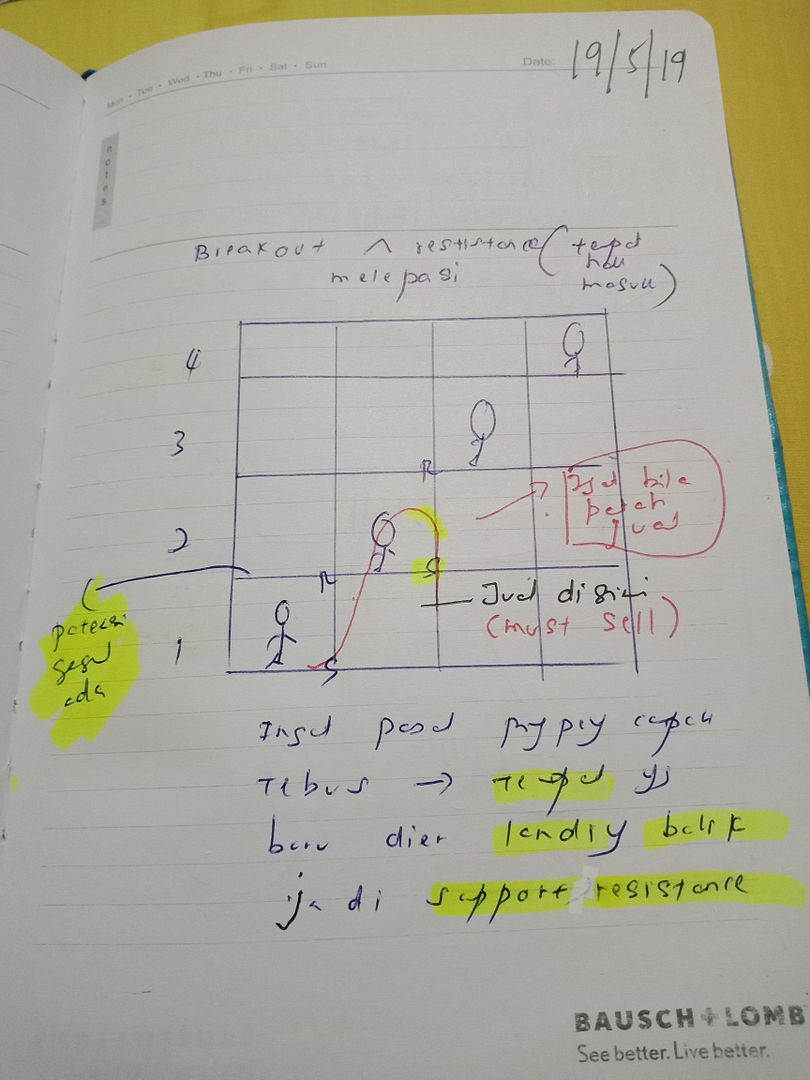 Mon • Tue • Wed • Thu • Fri • Sat • Sun
Date: 19/5/19
notes
Breakout ^ resistance (tempat
melepasi
nak
masuk)
4
3
2
1
R
R
S
S
Ingat bila
pecah
Jual
Jual disini
(must sell)
potensi
gagal
ada
Ingat pasal
Tebus → Tempat yg
baru dier landing balik
jadi support/resistance
BAUSCH + LOMB
See better. Live better.